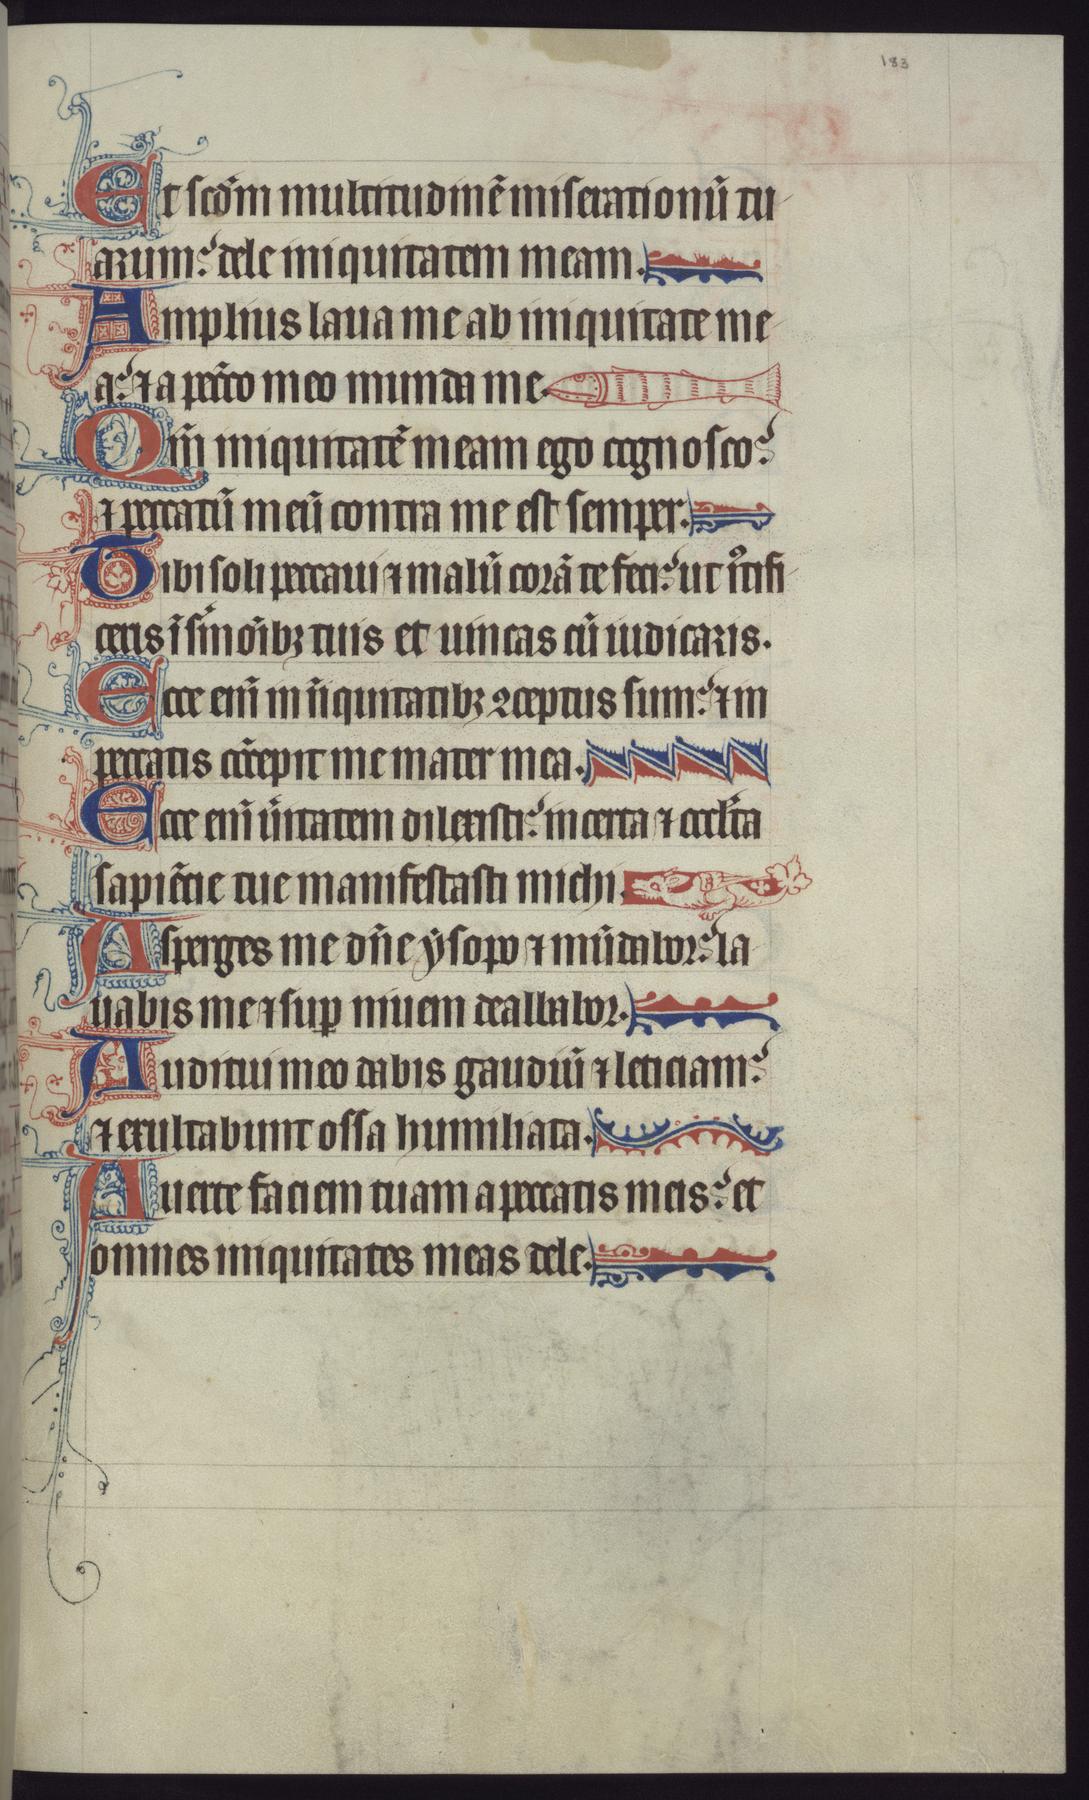 183
Et scd̄m multitudinē miserationū tu-
arum: dele iniquitatem meam.
Amplius laua me ab iniquitate me-
a: ⁊ a pcc̄o meo munda me.
Qm̄ iniquitatē meam ego cognosco:
⁊ peccatū meū contra me est semper.
Tibi soli peccaui ⁊ malū corā te feci: ut iͦtifi-
ceris ī s̄mōībꝫ tuis et uincas cū iudicaris.
Ecce eni̅ in iniquitatibꝫ ꝯceptus sum: ⁊ in
peccatis cōcepit me mater mea.
Ecce eni̅ ūitatem dilexisti: incerta ⁊ occl̄ta
sapiētie tue manifestasti michi.
Asperges me dn̄e ẏsopo ⁊ mūdabor: la-
uabis me ⁊ suꝑ niuem dealbabor.
Auditui meo dabis gaudiū ⁊ leticiam:
⁊ exultabunt ossa humiliata.
Auerte faciem tuam a peccatis meis: et
omnes iniquitates meas dele.